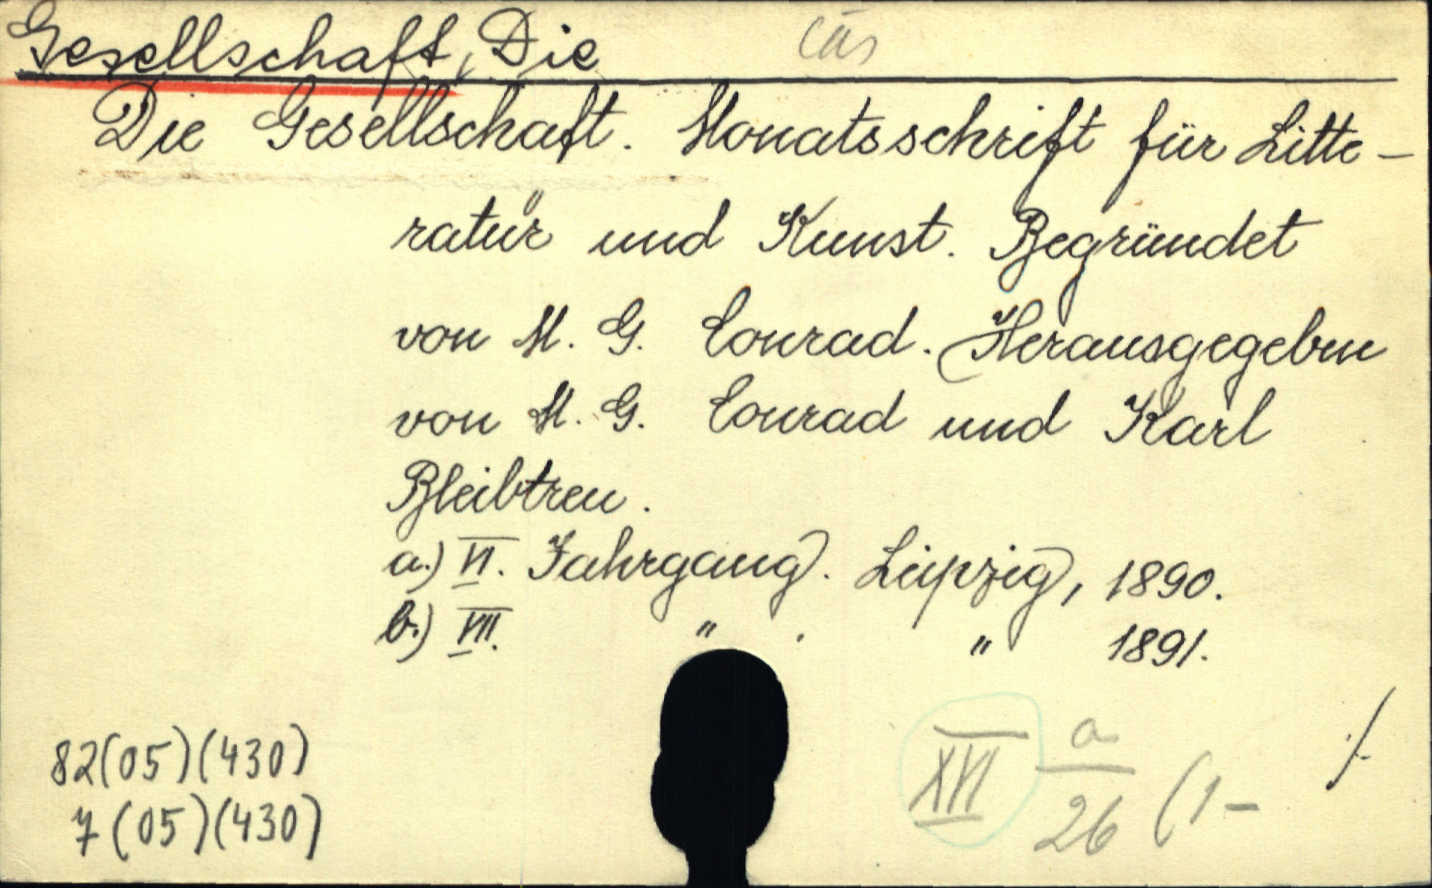 Gesellschaft, Die čas
Die Gesellschaft. Monatsschrift für Litte-
ratur und Kunst. Begründet
von M. G. Conrad. Herausgegeben
von M. G. Conrad und Karl
Bleibtreu.
a.) VI. Jahrgang. Leipzig, 1890.
b.) VII. " . " 1891.
82(05)(430)
7(05)(430)
XVI a/26 (1-
./.